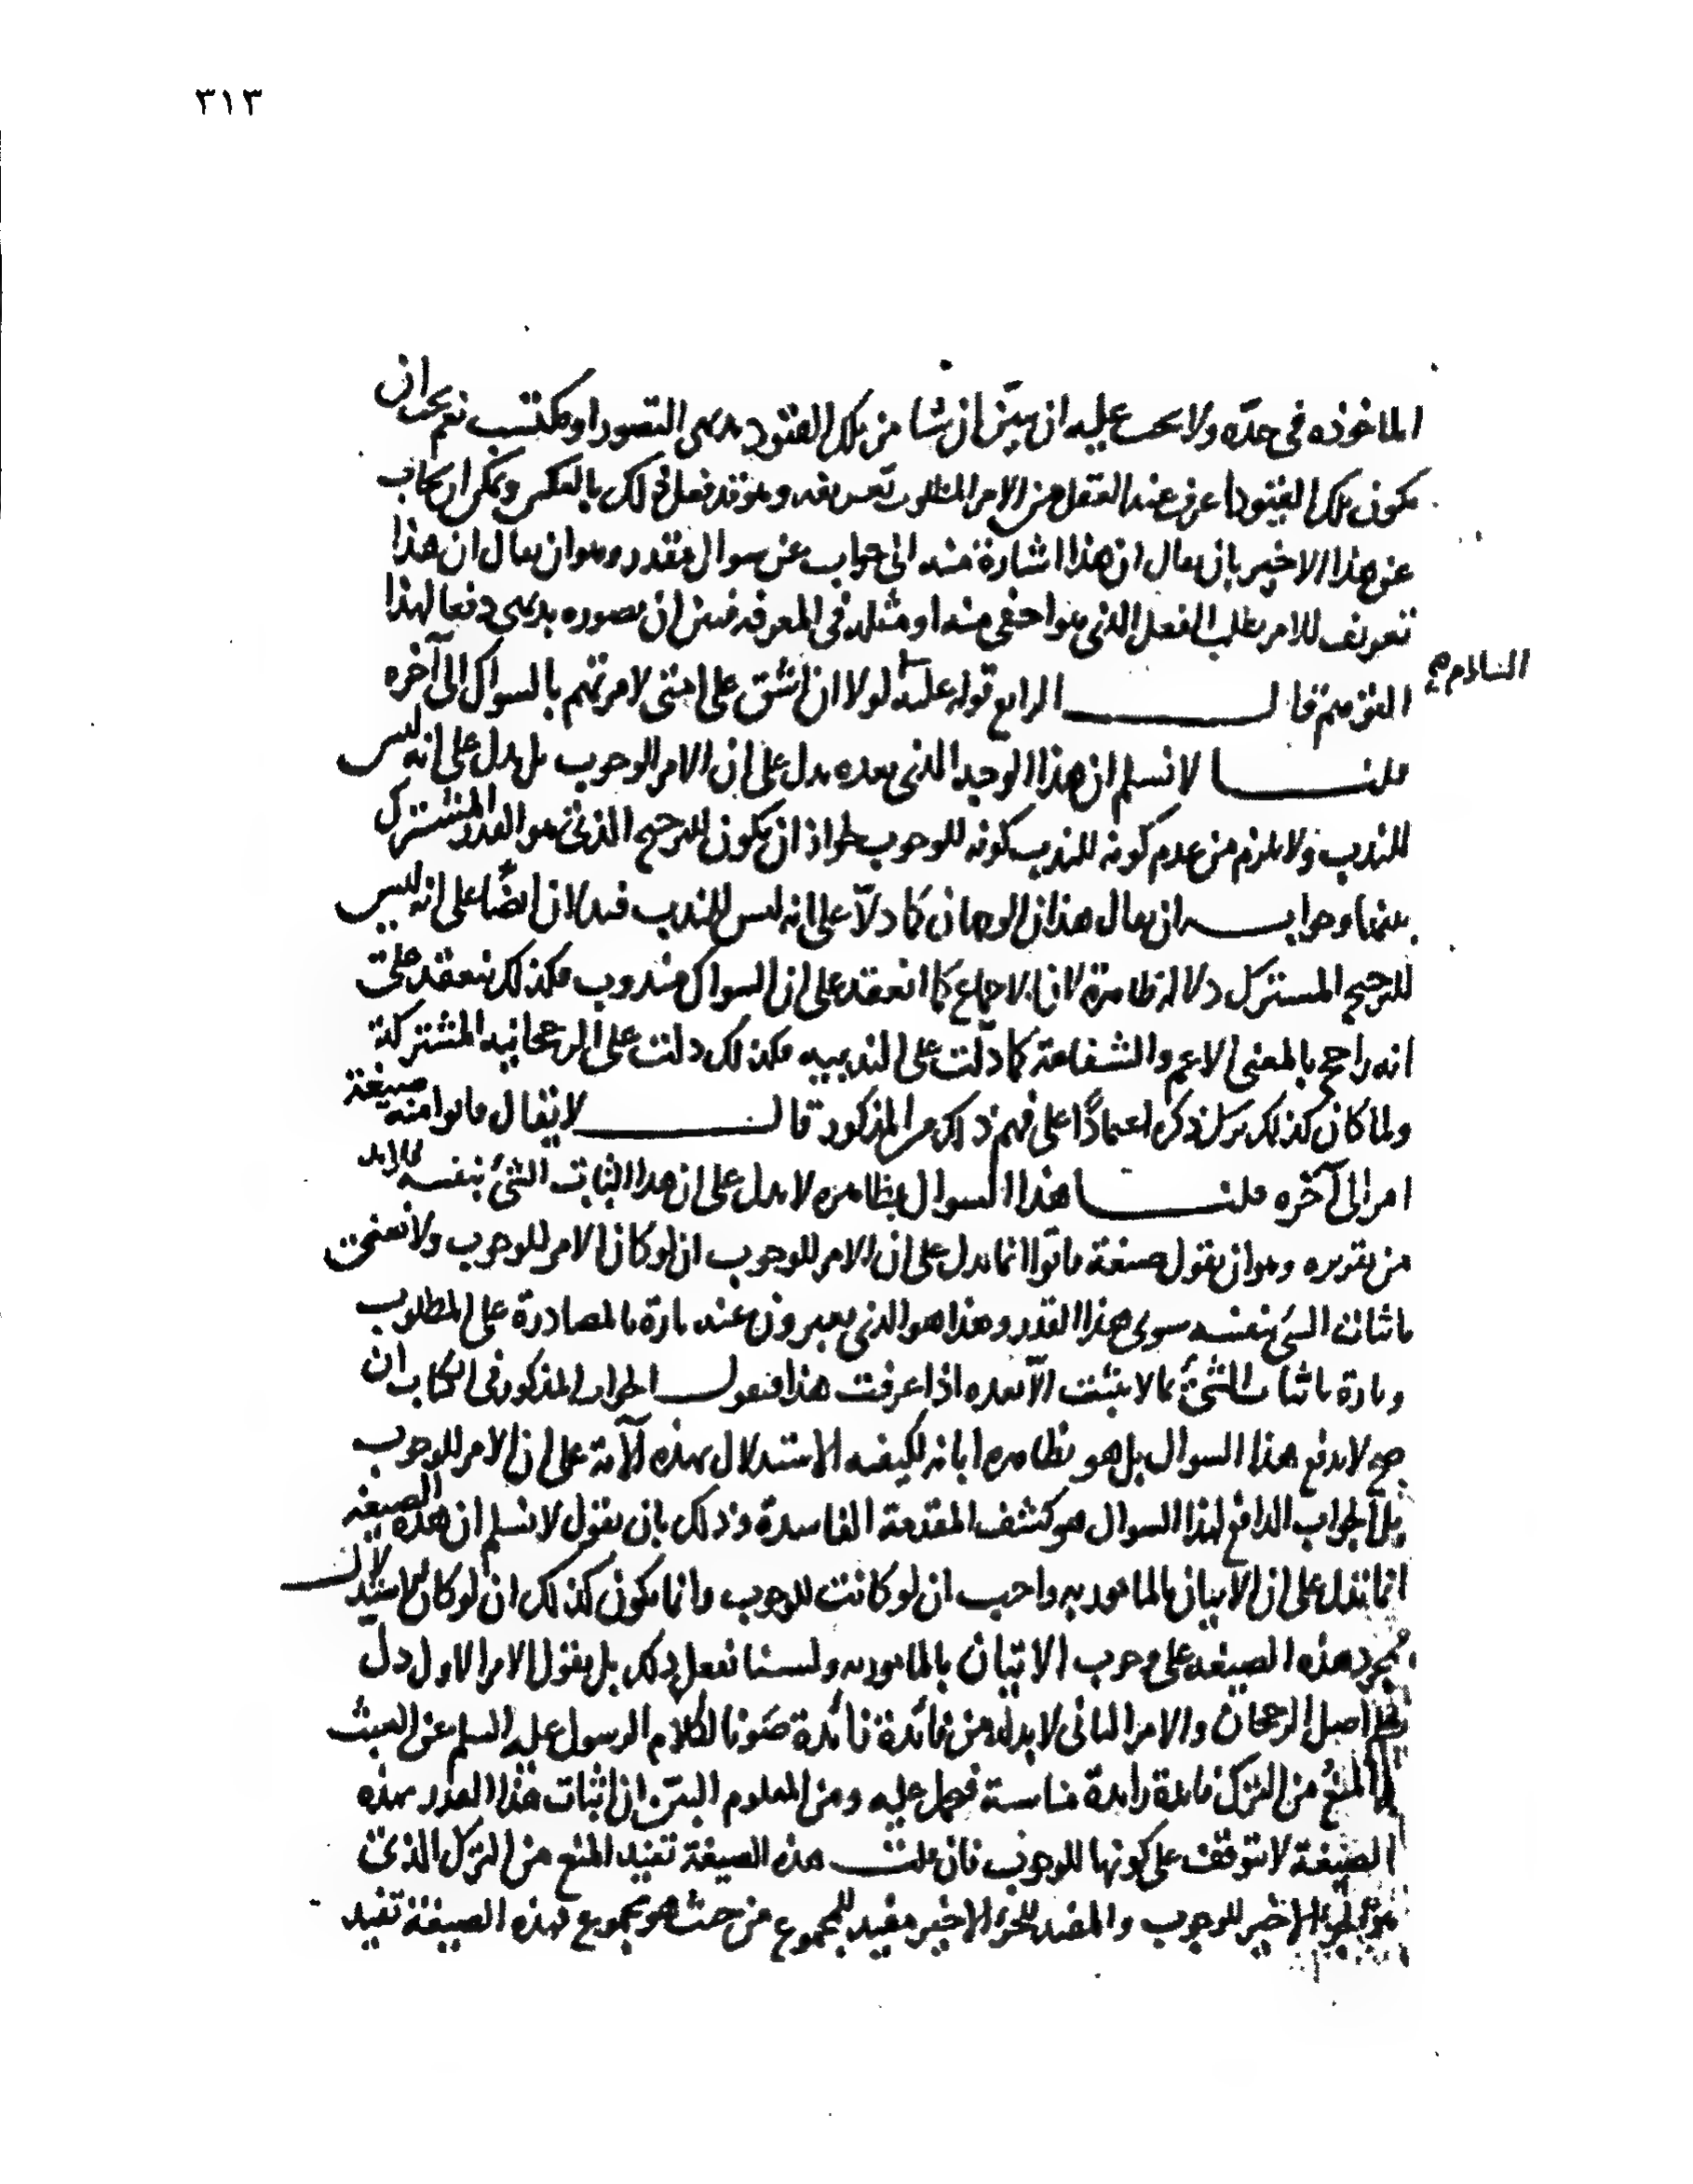 ٣١٣
الماخوذه فى حدّه ولا يجب عليه ان يبيّن ان شا من تلك القيود بديهى التصور او مكتسب نعم يجب ان
يكون تلك القيود اعرف عند العقل من الامر المطلوب تعريفه وهو قد فعل ذلك بالعكس ويمكن ان يجاب
عن هذا الاخير بان يقال ان هذا اشارة منه الى جواب عن سوال مقدر وهو ان يقال ان هذا
تعريف للامر بطلب الفعل الذى هو اخفى منه او مثله فى المعرفه فبين ان تصوره بديهى دفعا لهذا
التوهم قال الرابع قوله عليه لولا ان اشق على امتى لامرتهم بالسواك الى آخره
السلام صح
قلنا لا نسلم ان هذا الوجه الذى بعده يدل على ان الامر للوجوب بل يدل على انه ليس
للندب ولا يلزم من عدم كونه للندب كونه للوجوب لجواز ان يكون للترجيح الذى هو القدر المشترك
بينهما وجوابه ان يقال هذان الوجهان كما دلّا على انه ليس للندب فيدلان ايضًا على انه ليس
للترجيح المشترك دلالة ظاهرة لان الاجماع كما انعقد على ان السواك مندوب فكذلك ينعقد على
انه راجح بالمعنى الاعم والشفاعة كما دلّت على الندبيه فكذلك دلت على الرجحانيه المشتركة
ولما كان كذلك ترك ذكره اعتمادًا على فهم ذلك من المذكور قال لا يقال فاتوا منه صيغة
امر الى آخره قلنا هذا السوال بظاهره لا يدل على ان هذا اثبات الشئ بنفسه فلا بد
من تقريره وهو ان يقول صيغة فاتوا انما يدل على ان الامر للوجوب ان لو كان الامر للوجوب ولا نعنى
باثبات الشئ بنفسه سوى هذا القدر وهذا هو الذى يعبرون عنه تارة بالمصادرة على المطلوب
وتارة باثبات الشئ بما لا يثبت الّا بعده اذا عرفت هذا فنقول الجواب المذكور فى الكتاب ان
صح لا يدفع هذا السوال بل هو بظاهره ابانه لكيفيه الاستدلال بهذه الآية على ان الامر للوجوب
بل الجواب الدافع لهذا السوال هو كشف المقدمة الفاسدة وذلك بان يقول لا نسلم ان هذه الصيغه
انما تدل على ان الاتيان بالمامور به واجب ان لو كانت للوجوب وانما يكون كذلك ان لو كان الاستدلال
بمجرد هذه الصيغه على وجوب الاتيان بالمامور به ولسنا نفعل ذلك بل يقول الامر الاول دل
على اصل الرجحان والامر الثانى لا بد له من فائدة زائدة صونا لكلام الرسول عليه السلم عن العبث
المنع من الترك فائدة زايدة مناسبة فحمل عليه ومن المعلوم البيّن ان اثبات هذا القدر بهذه
الصيغة لا يتوقف على كونها للوجوب فان قلت هذه الصيغة تفيد المنع من الترك الذى
هو الجزء الاخير للوجوب والمفيد للجزء الاخير مفيد للمجموع من حيث هو مجموع فهذه الصيغة تفيد